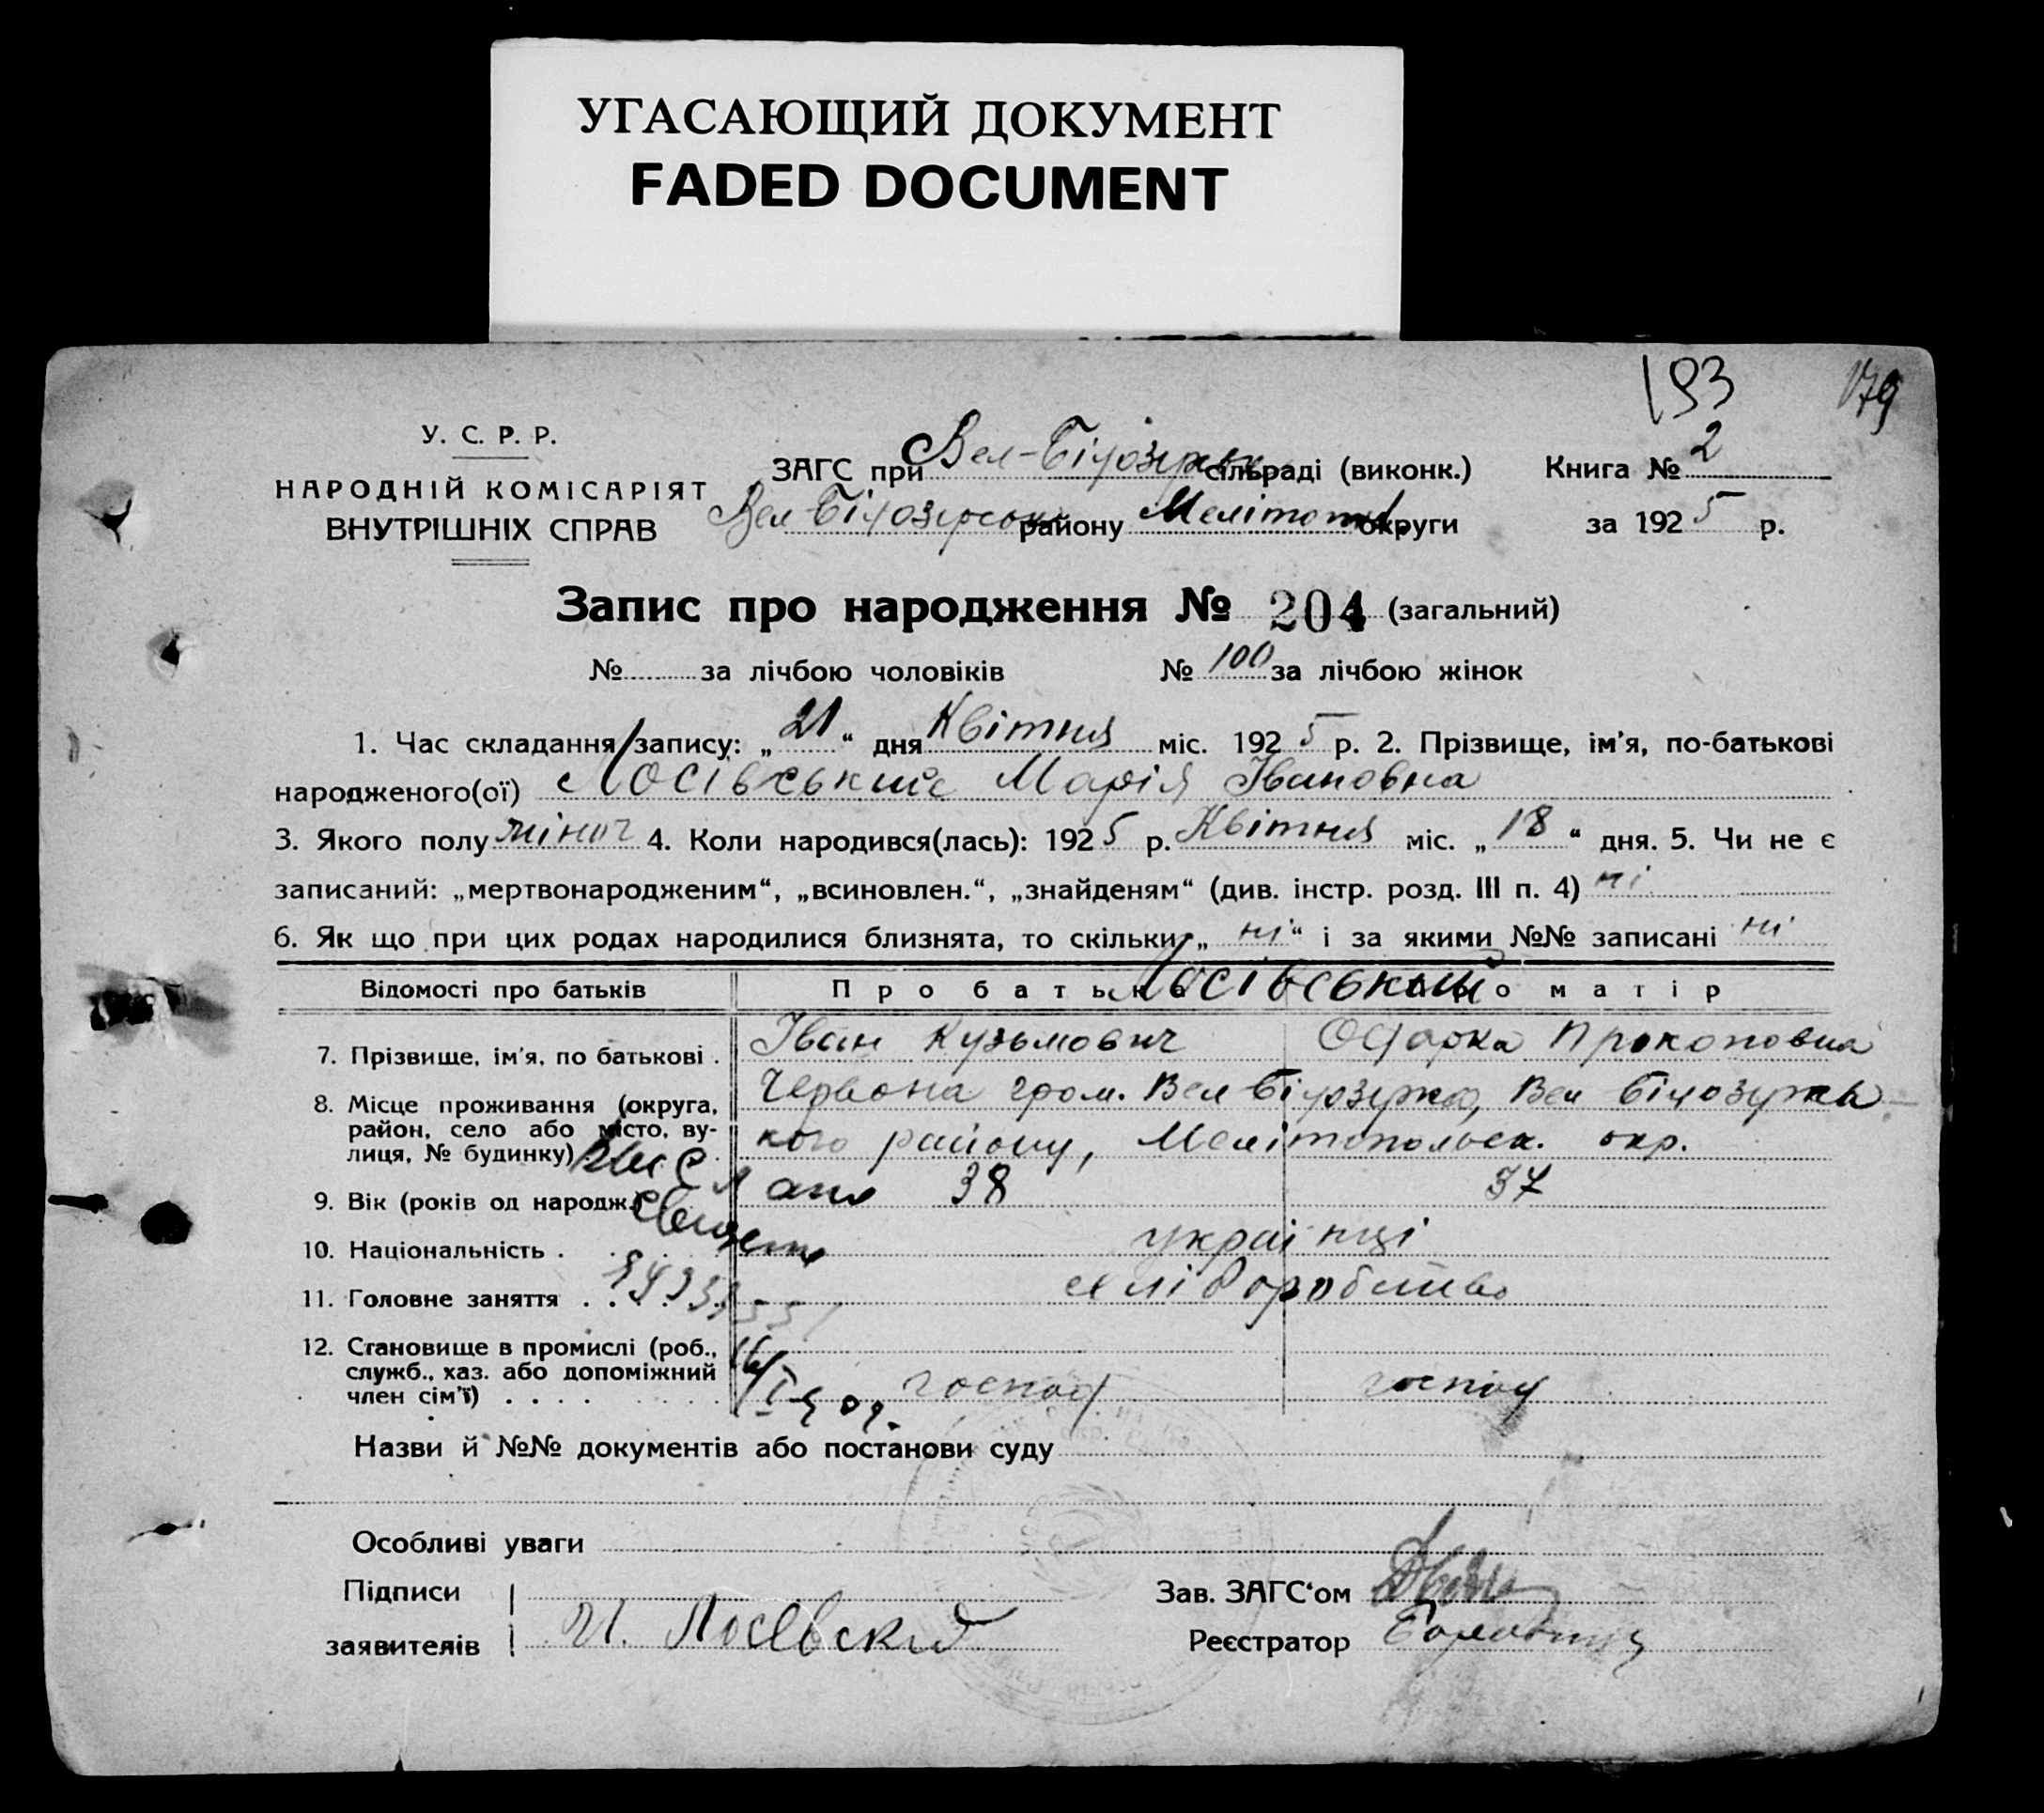 УГАСАЮЩИЙ ДОКУМЕНТ
FADED DOCUMENT
193
179
У. С. Р. Р.
НАРОДНІЙ КОМІСАРІЯТ
ВНУТРІШНІХ СПРАВ
ЗАГС при Вел-Білозерськ сільраді (виконк.) Книга № 2
Вел Білозерськ району Мелітоп. округи за 1925 р.
Запис про народження № 204 (загальний)
№ за лічбою чоловіків № 100 за лічбою жінок
1. Час складання запису: „21“ дня Квітня міс. 1925 р. 2. Прізвище, ім'я, по-батькові
народженого(ої) Лосівський Марія Івановна
3. Якого полу жіноч 4. Коли народився(лась): 1925 р. Квітня міс. „18“ дня. 5. Чи не є
записаний: „мертвонародженим“, „всиновлен.“, „знайденям“ (див. інстр. розд. III п. 4) ні
6. Як що при цих родах народилися близнята, то скільки „ні“ і за якими №№ записані ні
Відомості про батьків Про батька Лосівський Про матір
7. Прізвище, ім'я, по батькові . Іван Кузьмович Одарка Прокоповна
8. Місце проживання (округа, Червона гром. Вел Білозерка, Вел Білозерсь
район, село або місто, ву- кого району, Мелітопольськ. окр.
лиця, № будинку)
9. Вік (років од народж.) 38 37
10. Національність . українці
11. Головне заняття . . . . хліборобство
12. Становище в промислі (роб.,
служб., хаз. або допоміжний
член сім'ї) . . . . господ господ
Назви й №№ документів або постанови суду
Особливі уваги
Підписи Зав. ЗАГС'ом
заявителів И. Лосевский Реєстратор